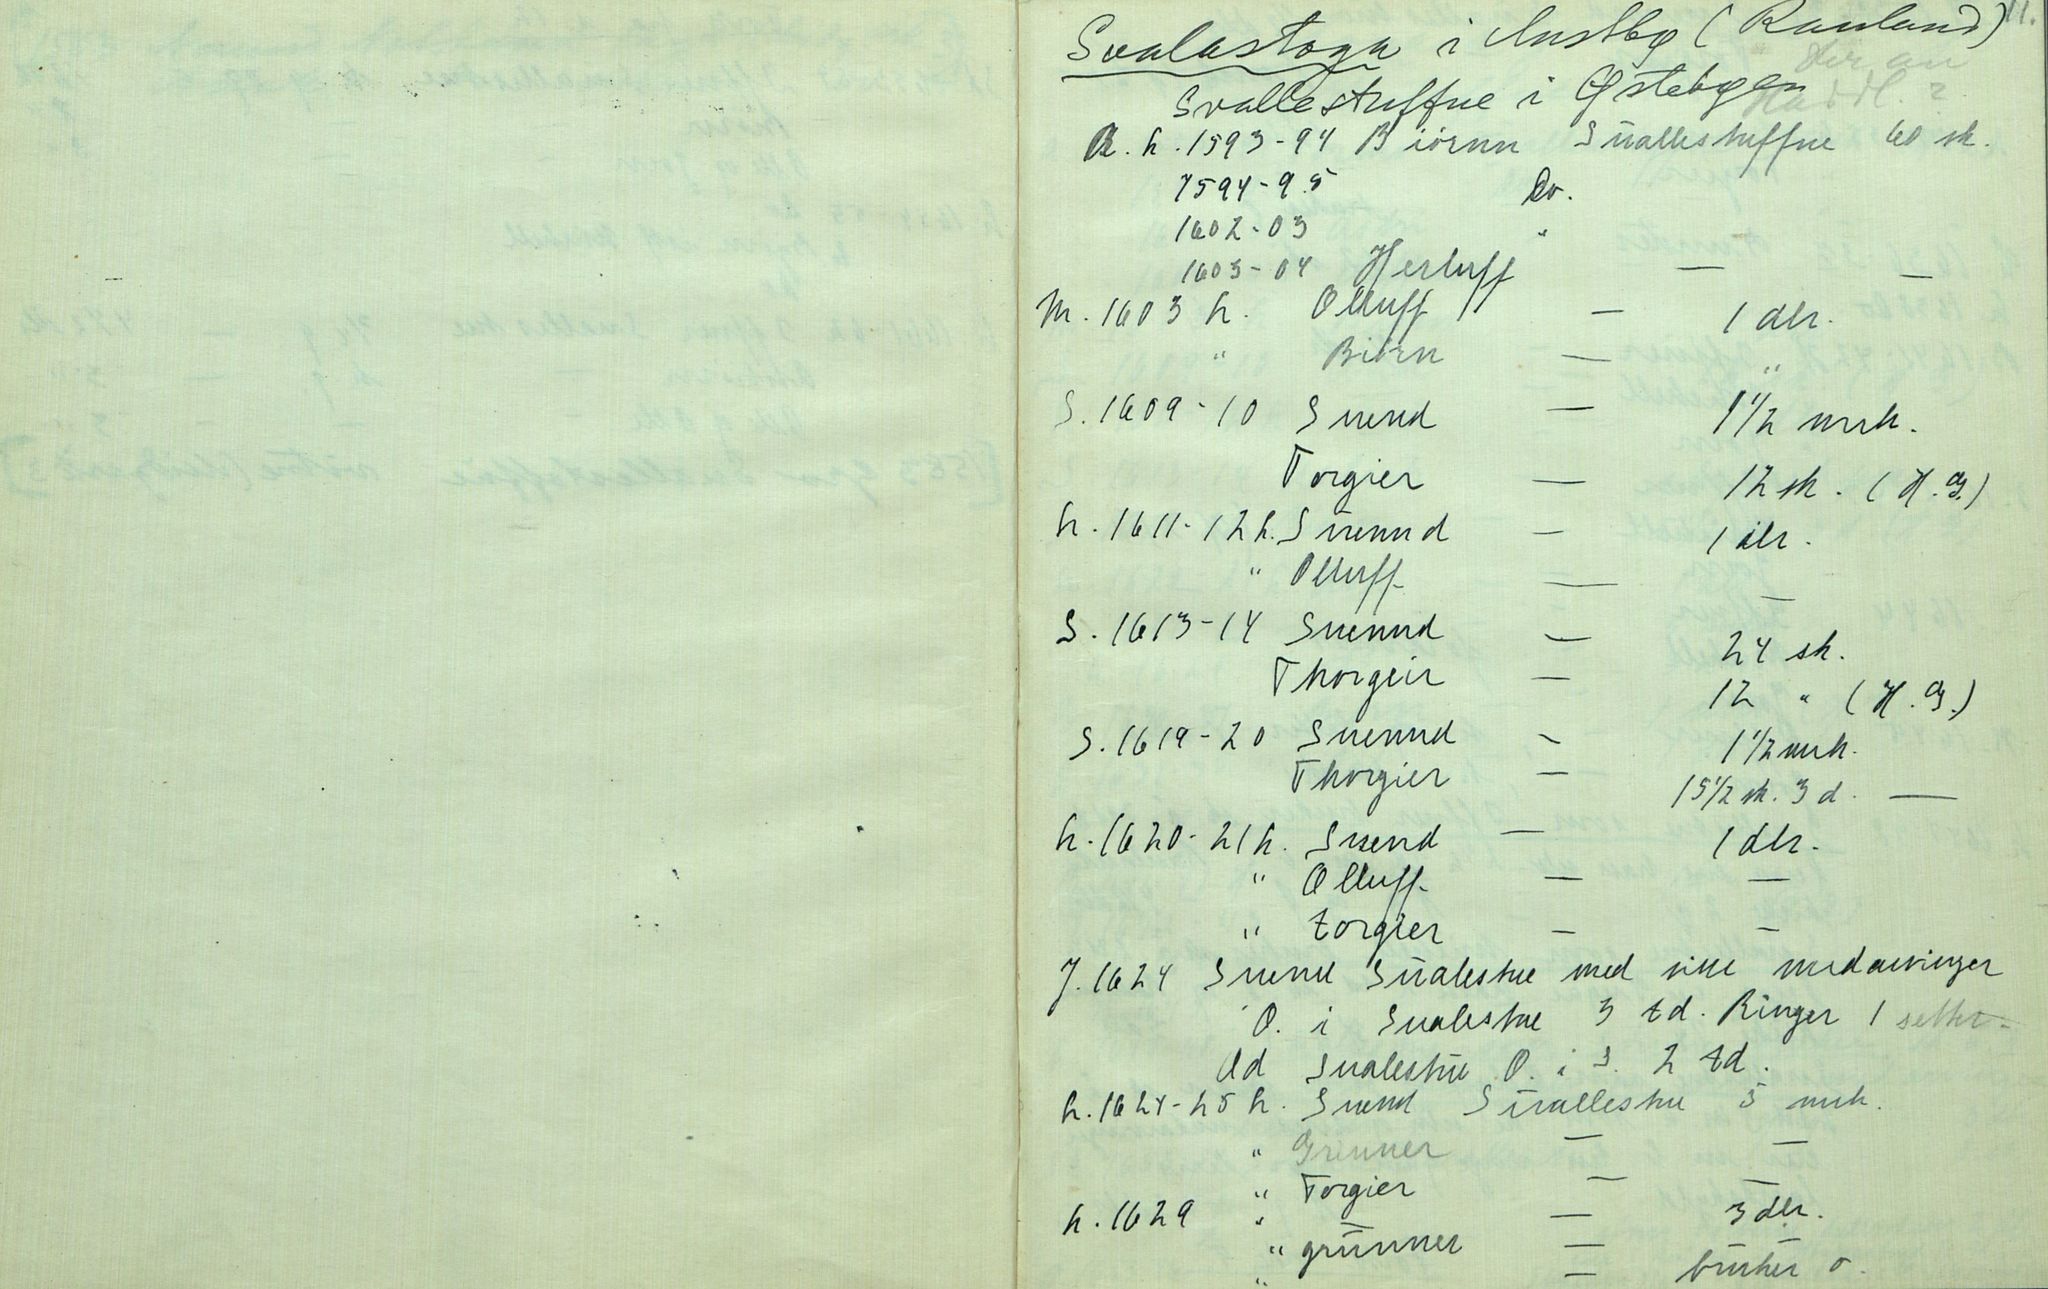 11.
Svalastoga i Austbø (Rauland)
Svallestuffue i Østebøgen
R. h. 1593-94 Biörnn Suallestuffue 60 sk.
1594-95 Do.
1602-03 "
1603-04 Herluff — —
M. 1603 h. Olluff — 1 dlr.
" Biörn — "
S. 1609-10 Suend — 1 1/2 mrk.
Torgier — 12 sk. (H.G.)
h. 1611-12 h. Suennd — 1 dlr.
" Olluff — —
S. 1613-14 Suennd — 24 sk.
Thorgeir — 12 " (H.G.)
S. 1619-20 Suennd — 1 1/2 mrk.
Thorgier — 15 1/2 sk. 3 d. —
h. 1620-21 h. Suend — 1 dlr.
" Olluff — —
" torgier — —
J. 1624 Suend Sualestue med sine medarvinger
O. i Sualestue 3 td. Ringer 1 setter.
Ad Sualestue O. i S. 2 td.
h. 1624-25 h. Suend Suallestue 3 mrk.
" Grunner — —
" Torgier — —
h. 1629 " — — 3 dlr.
" grunner — —
" —